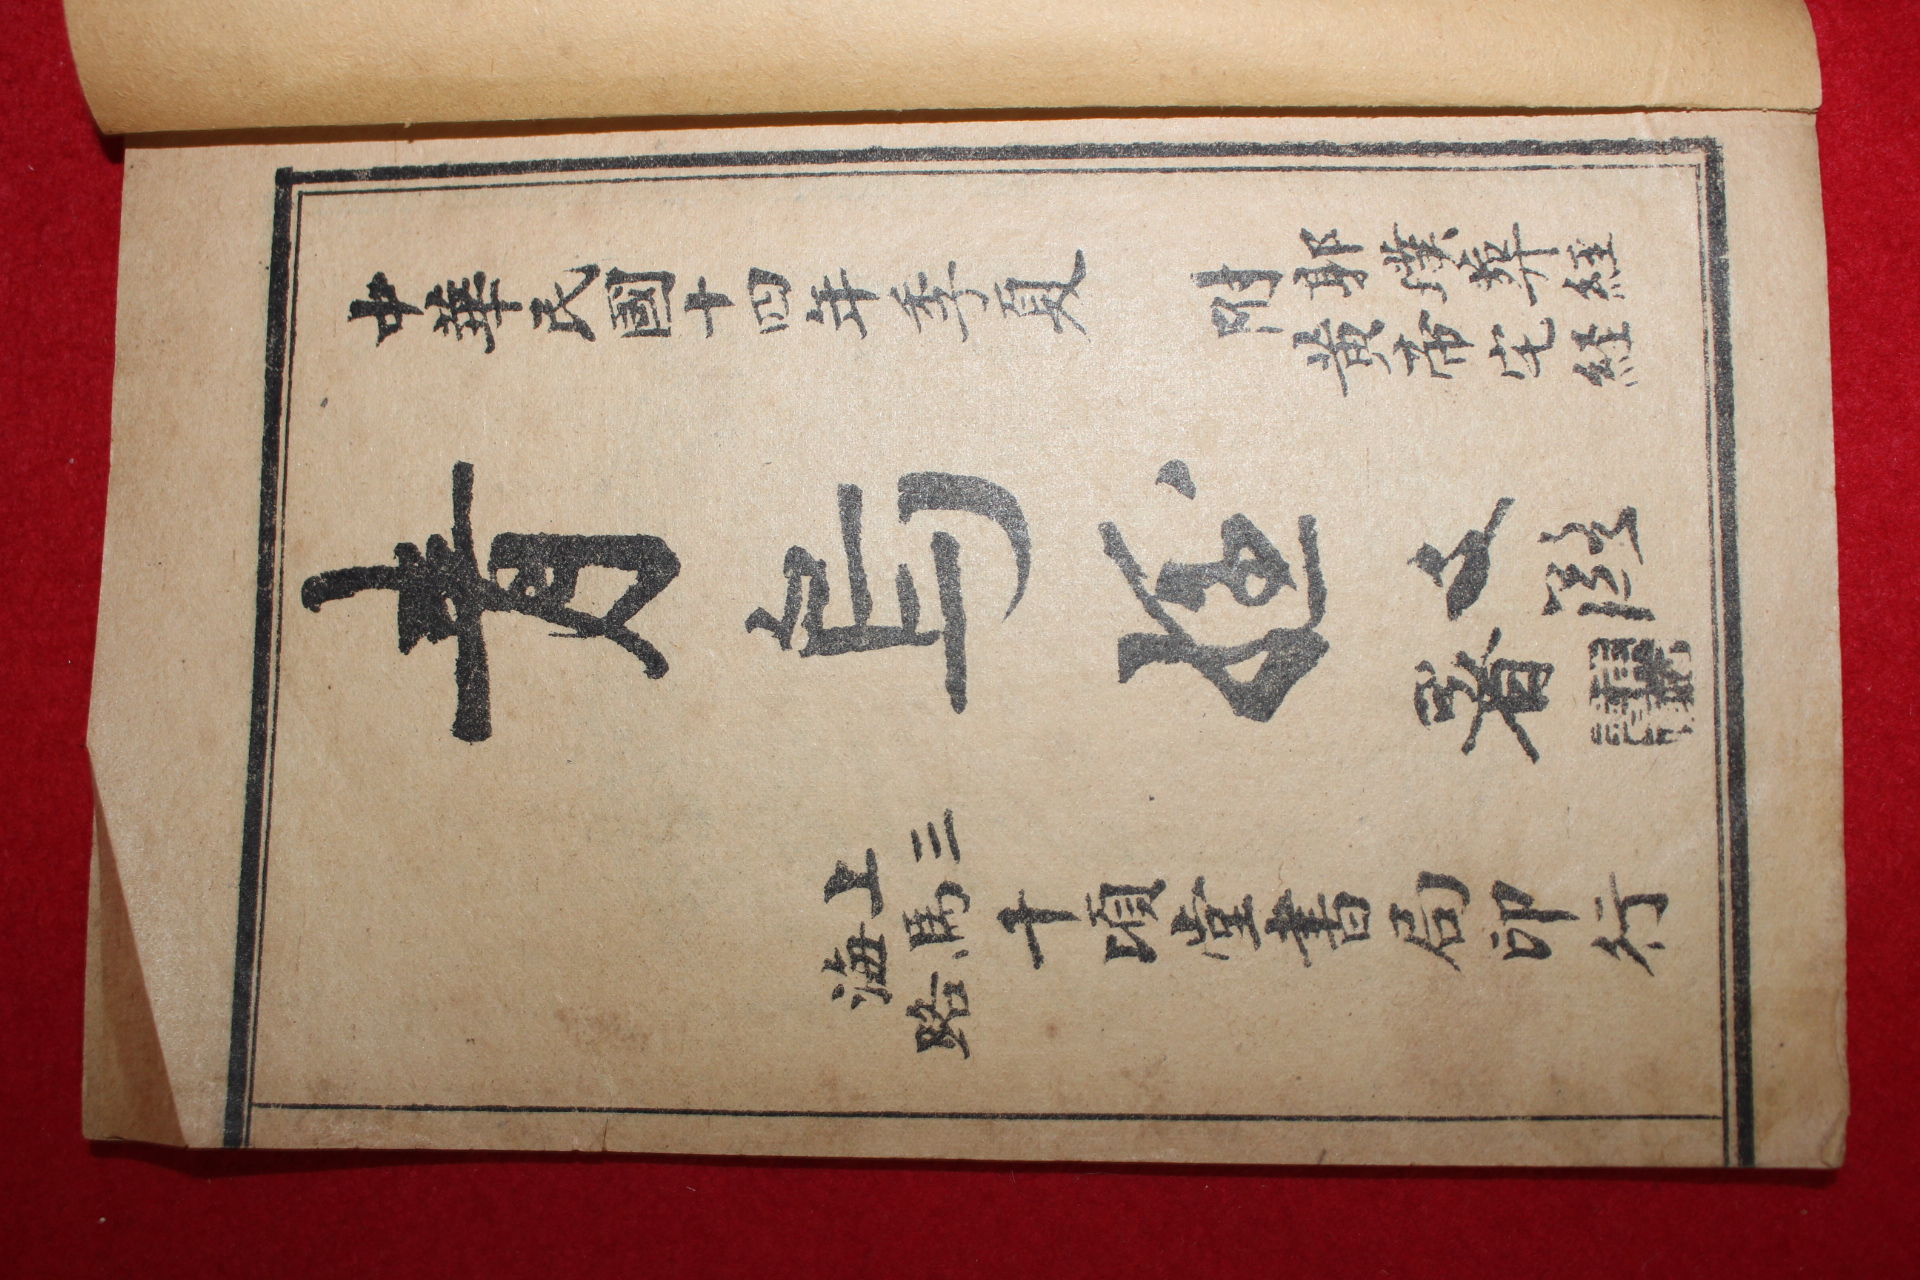 中華民國十四年季夏
附
郭璞葬經
黃帝宅經
青烏經
上海
三馬路
千頃堂書局印行